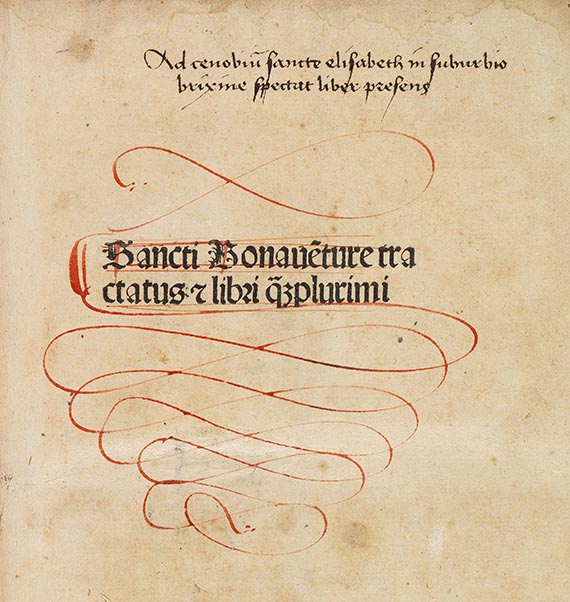 Ad cenobiū sancte elisabeth in suburbio
brixine spectat liber presens
Sancti Bonauētture tra
ctatus ⁊ libri q̄ꝫplurimi